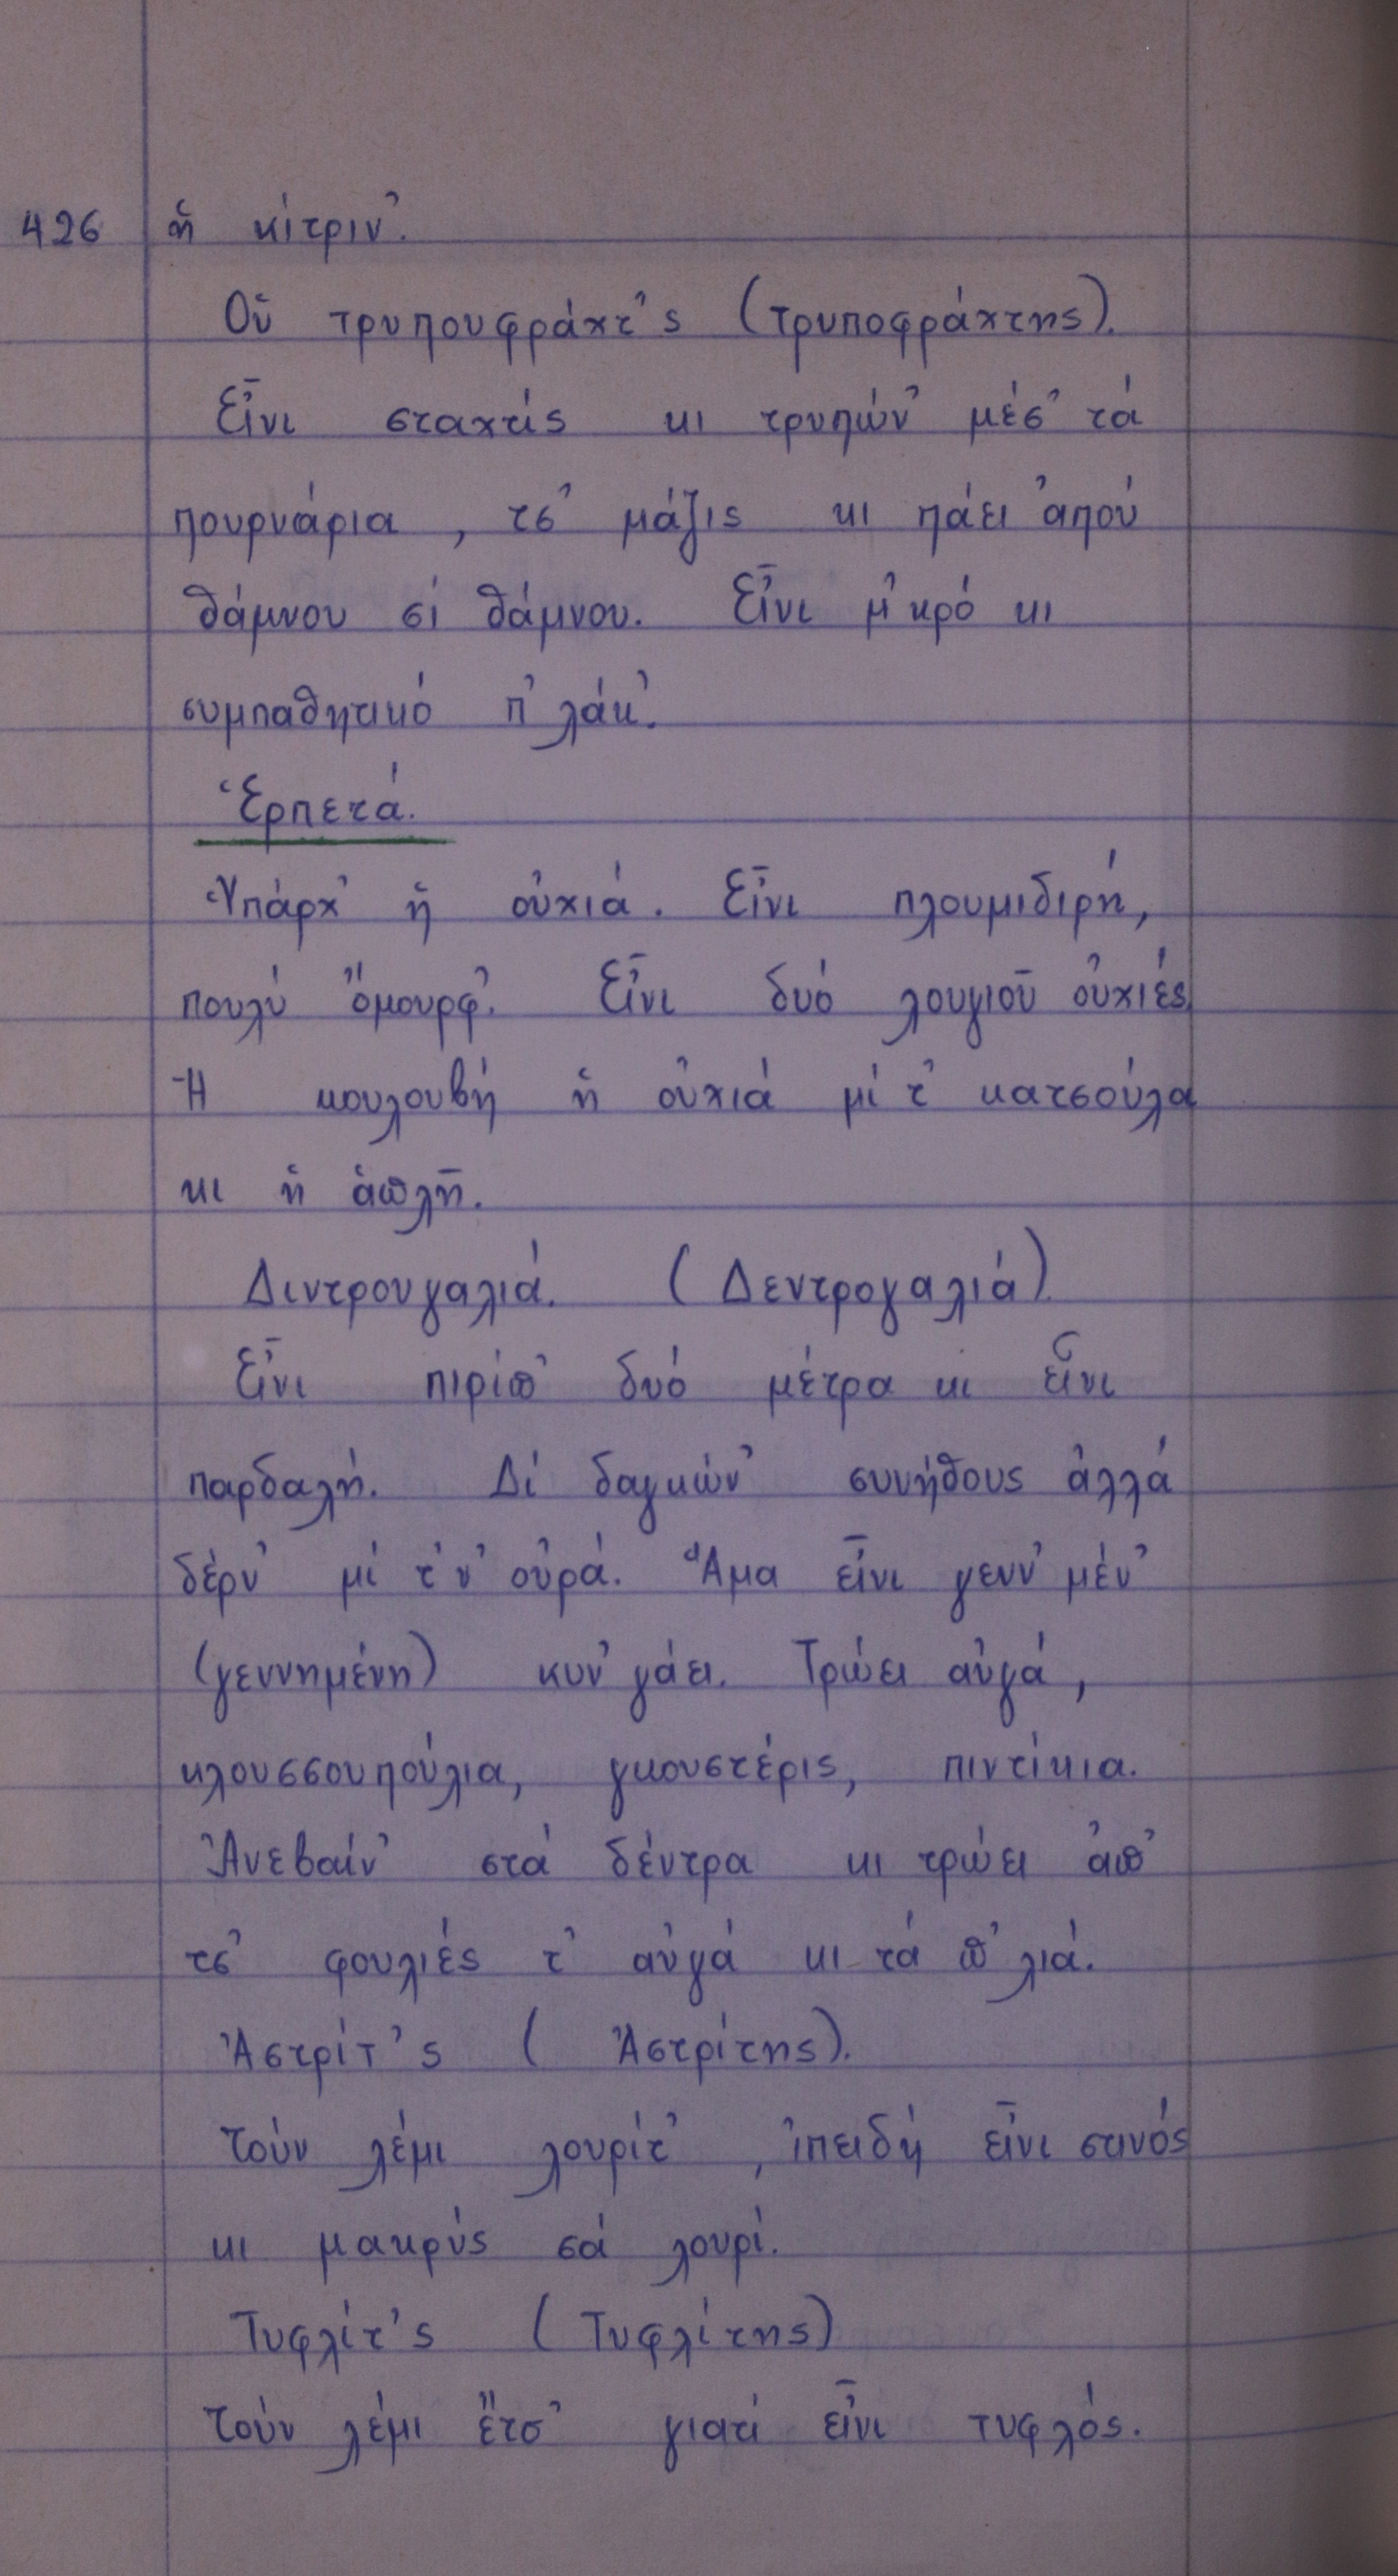 426 ἤ κίτριν'.
Οὑ τρυπουφράχτ'ς (τρυποφράχτης).
Εἶνι σταχτίς κι τρυπών' μέσ' τά
πουρνάρια, τσ' μάζις κι πάει ἀπού
θάμνου σί θάμνου. Εἶνι μ'κρό κι
συμπαθητικό π'λάκ'.
Ἑρπετά.
Ὑπάρχ' ἡ οὐχιά. Εἶνι πλουμιδιρή,
πουλύ ὄμουρφ'. Εἶνι δυό λουγιοῦ οὐχιές
Ἡ κουλουβή ἡ οὐχιά μί τ' κατσούλα
κι ἡ ἁπλῆ.
Διντρουγαλιά. (Δεντρογαλιά).
Εἶνι πιρίπ' δυό μέτρα κι εἶνι
παρδαλή. Δί δαγκών' συνήθους ἀλλά
δέρν' μί τ'ν' οὐρά. Ἅμα εἶνι γενν'μέν'
(γεννημένη) κυν'γάει. Τρώει αὐγά,
κλουσσουπούλια, γκουστέρις, πιντίκια.
Ἀνεβαίν' στά δέντρα κι τρώει ἀπ'
τσ' φουλιές τ' αὐγά κι τά π'λιά.
Ἀστρίτ'ς (Ἀστρίτης).
Τούν λέμι λουρίτ', ἰπειδή εἶνι στινός
κι μακρύς σά λουρί.
Τυφλίτ'ς (Τυφλίτης)
Τούν λέμι ἔτσ' γιατί εἶνι τυφλός.